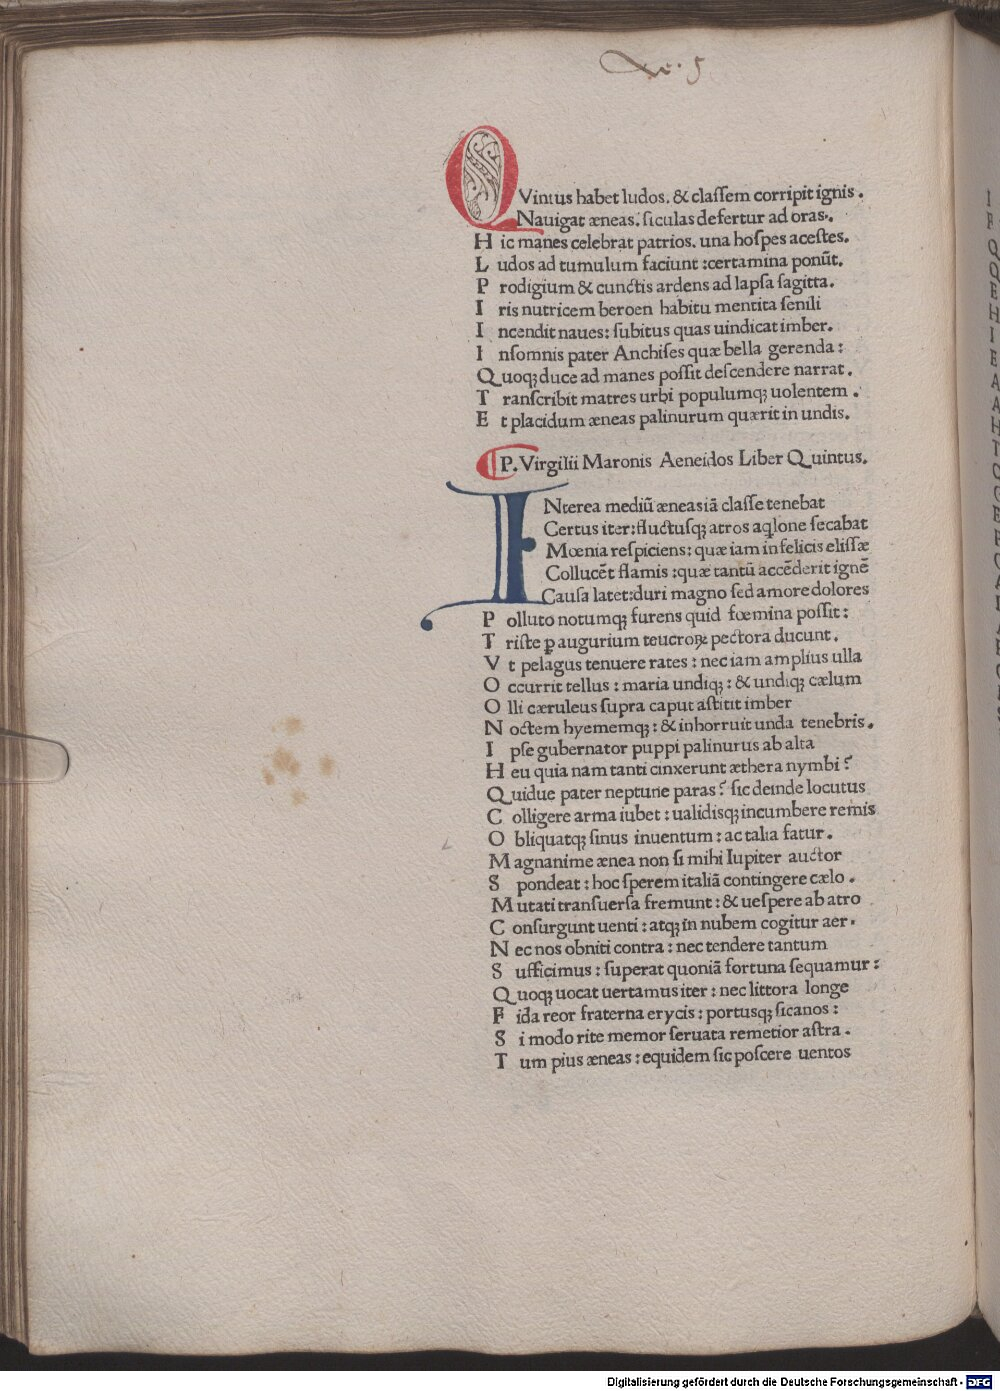 QVintus habet ludos. & claſſem corripit ignis.
Nauigat æneas. ſiculas defertur ad oras.
Hic manes celebrat patrios. una hoſpes aceſtes.
Ludos ad tumulum faciunt : certamina ponūt.
Prodigium & cunctis ardens ad lapſa ſagitta.
Iris nutricem beroen habitu mentita ſenili
Incendit naues: ſubitus quas uindicat imber.
Inſomnis pater Anchiſes quæ bella gerenda :
Quoqꝫ duce ad manes poſſit deſcendere narrat.
Tranſcribit matres urbi populumqꝫ uolentem .
Et placidum æneas palinurum quærit in undis.
P. Virgilii Maronis Aeneidos Liber Quintus.
INterea mediū æneas iā claſſe tenebat
Certus iter: fluctuſqꝫ atros aqlone ſecabat
Mœnia reſpiciens: quæ iam infelicis eliſſæ
Collucēt flamis : quæ tantū accēderit ignē
Cauſa latet: duri magno ſed amore dolores
Polluto notumqꝫ furens quid fœmina poſſit:
Triſte ꝑ augurium teucroꝝ pectora ducunt.
Vt pelagus tenuere rates : nec iam amplius ulla
Occurrit tellus : maria undiqꝫ : & undiqꝫ cælum
Olli cæruleus ſupra caput aſtitit imber
Noctem hyememqꝫ : & inhorruit unda tenebris.
Ipſe gubernator puppi palinurus ab alta
Heu quia nam tanti cinxerunt æthera nymbi ?
Quidue pater neptune paras ? ſic deinde locutus
Colligere arma iubet : ualidiſqꝫ incumbere remis
Obliquatqꝫ ſinus inuentum : ac talia fatur.
Magnanime ænea non ſi mihi Iupiter auctor
Spondeat : hoc ſperem italiā contingere cælo .
Mutati tranſuerſa fremunt : & ueſpere ab atro
Conſurgunt uenti : atqꝫ in nubem cogitur aer.
Nec nos obniti contra : nec tendere tantum
Sufficimus : ſuperat quoniā fortuna ſequamur :
Quoqꝫ uocat uertamus iter : nec littora longe
Fida reor fraterna erycis : portuſqꝫ ſicanos :
Si modo rite memor ſeruata remetior aſtra .
Tum pius æneas : equidem ſic poſcere uentos
Digitalisierung gefördert durch die Deutsche Forschungsgemeinschaft - DFG